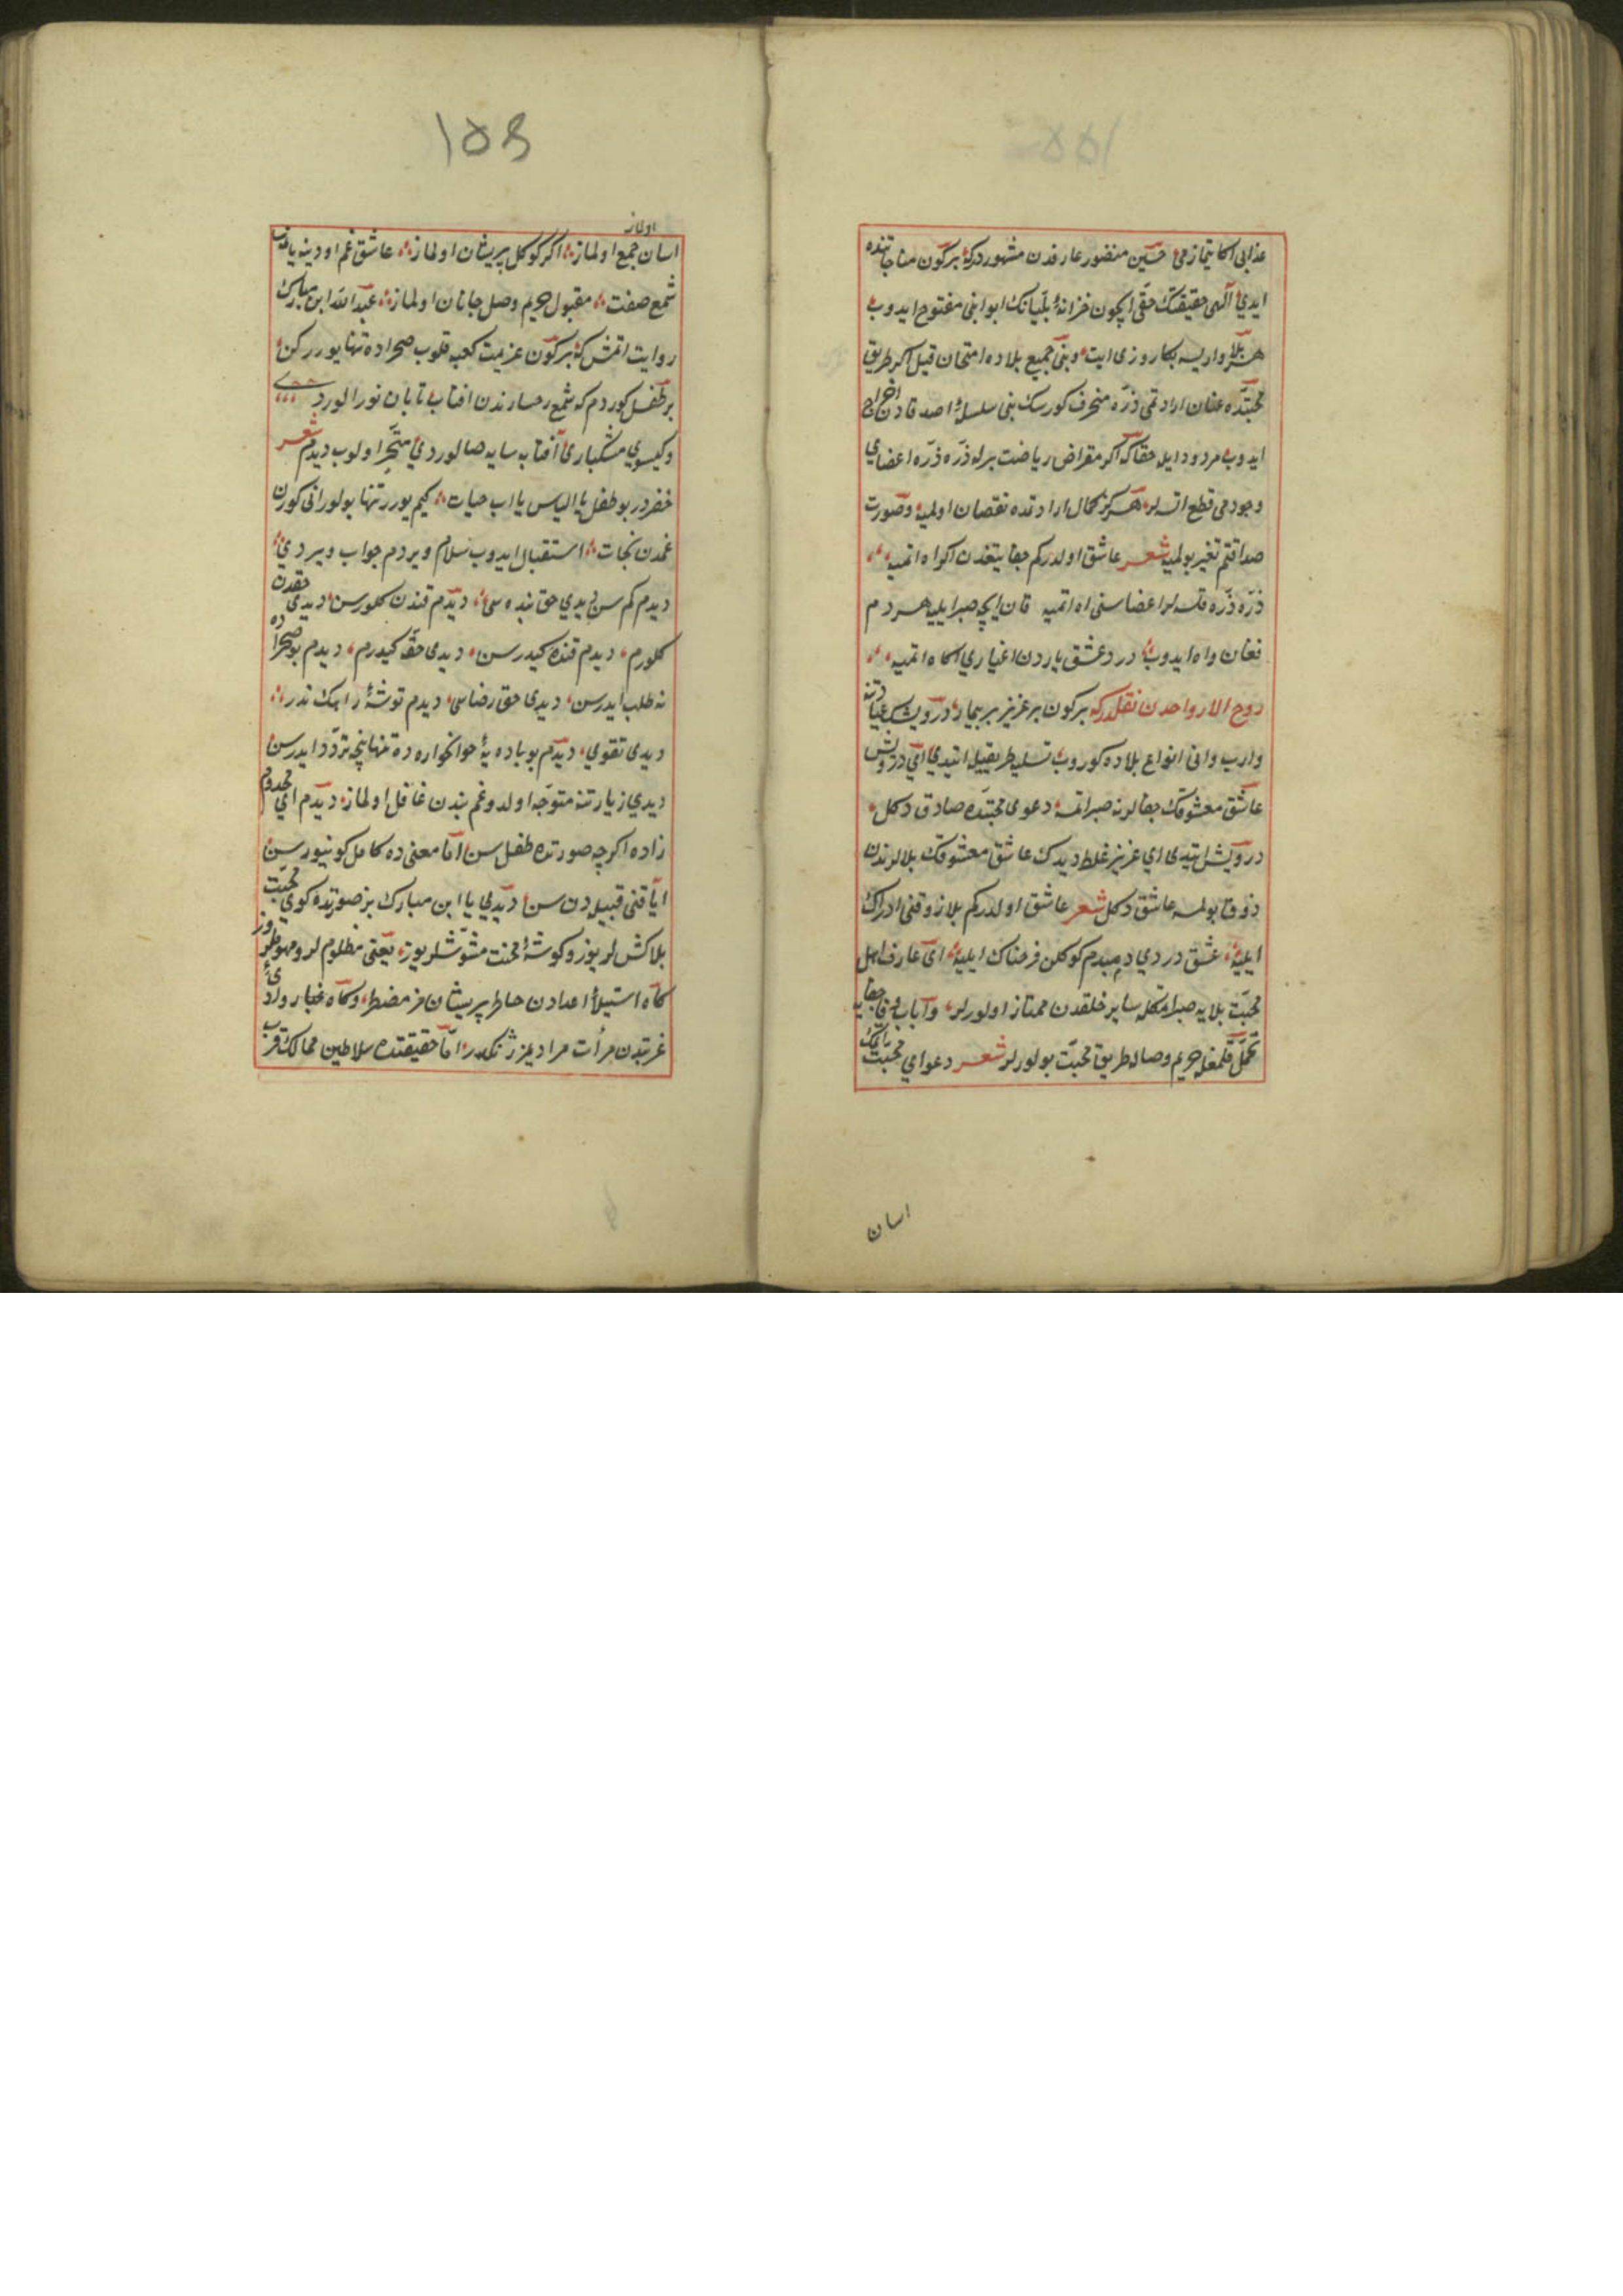 عذابى اكا يتمازمى حسين منصور عارفدن مشهوردركه بركون مناجاتنده
ايدى الهى حقيقتك حقى ايچون خزانهٔ بلّيانك ابوابنى مفتوح ايدوب
هر بلا وارايسه بكا روزى ايت وبنى جميع بلاده امتحان قيل اكر طريق
محبتده عنان ارادتمى ذرّه منحرف كورسك بنى سلسلهٔ اصدقادن اخراج
ايدوب مردود ايله حقاكه اكر مقراض رياضت برله ذرّه ذرّه اعضاى
وجودمى قطع اتسه‌لر هركز كمال ارادتده نقصان اولميه وصورت
صداقتم تغير بولميه شعر عاشق اولدركم جفا تيغندن اكراه اتميه
ذرّه ذرّه قلسه‌لر اعضاسنى اه اتميه قان ايچه صبر ايليه هردم
فغان واه ايدوب درد عشق ياردن اغيارى اكاه اتميه
روح الارواحدن نقلدركه بركون بر عزيز بر بيمار درويش عيادتنه
واروب وانى انواع بلاده كوروب تسليه طريقيله ايتدى اى درويش
عاشق معشوقك جفالرنه صبر اتمسه دعوى محبتده صادق دكل
درويش ايتدى اى عزيز غلط ديدك عاشق معشوقك بلالرندن
ذوق بولمسه عاشق دكل شعر عاشق اولدركم بلا ذوقنى ادراك
ايليه عشق دردى دمبدم كوكلن فرحناك ايليه اى عارف اهل
محبّت بلايه صبر اتمكله ساير خلقدن ممتاز اولورلر وارباب وفا جفايه
تحمّل قلمغله حريم وصاله طريق محبّت بولورلر شعر دعواى محبّت ايتمك
اسان
158
اولماز
اسان جمع اولماز اكر كوكل پريشان اولماز عاشق غم اودينه يانميوب
شمع صفت مقبول حريم وصل جانان اولماز عبد الله ابن مبارك
روايت اتمش كه بركون عزيمت كعبه قلوب صحراده تنها يورركن
بر طفل كوردم كه شمع رخسارندن افتاب تابان نور الوردى
وكيسوى مشكبارى آفتابه سايه صالوردى متحيّر اولوب ديدم شعر
خضردر بو طفل يا الياس يا اب حيات كيم يورر تنها بولور انى كورن
غمدن نجات استقبال ايدوب سلام ويردم جواب ويردى
ديدم كم سن ديدى حق بنده سى ديدم قندن كلورسن ديدى حقدن
كلورم ديدم قنده كيدرسن ديدى حقّه كيدرم ديدم بو صحراده
نه طلب ايدرسن ديدى حق رضاسى ديدم توشهٔ راهك ندر
ديدى تقوى ديدم بو باديهٔ خوانخواره ده تنها نيچه تردّد ايدرسن
ديدى زيارتنه متوجّه اولدوغم بندن غافل اولماز ديدم اى مخدوم
زاده اكرچه صورتده طفل سن امّا معنى ده كامل كورينورسن
ايا قنى قبيله دن سن ديدى يا ابن مبارك بز صورتده كوى محبّت
بلاكش لريوز وكوشهٔ محنت مشوّشلريوز يعنى مظلوم لر ومهموملروز
كاه استيلاء اعدادن خاطر پريشان مز مضطر وكاه غبار وادئ
غربتدن مرآت مراديمز ژنكلدر امّا حقيقتده سلاطين ممالك قرب